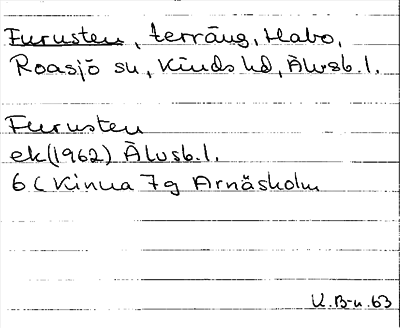 Furusten, terräng, Habo,
Roasjö sn, Kinds hd, Älvsb.l.
Furusten
ek(1962) Älvsb.l.
6 C Kinna 7g Arnäsholm
K.B-n.63